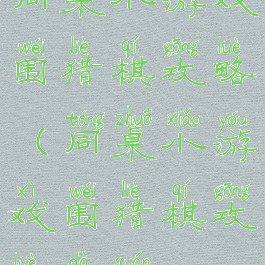 同桌小游戏
wéi liè qí gōng lüè
围猎棋攻略
tóng zhuō xiǎo yóu
（同桌小游
xì wéi liè qí gōng
戏围猎棋攻
lüè dà quán